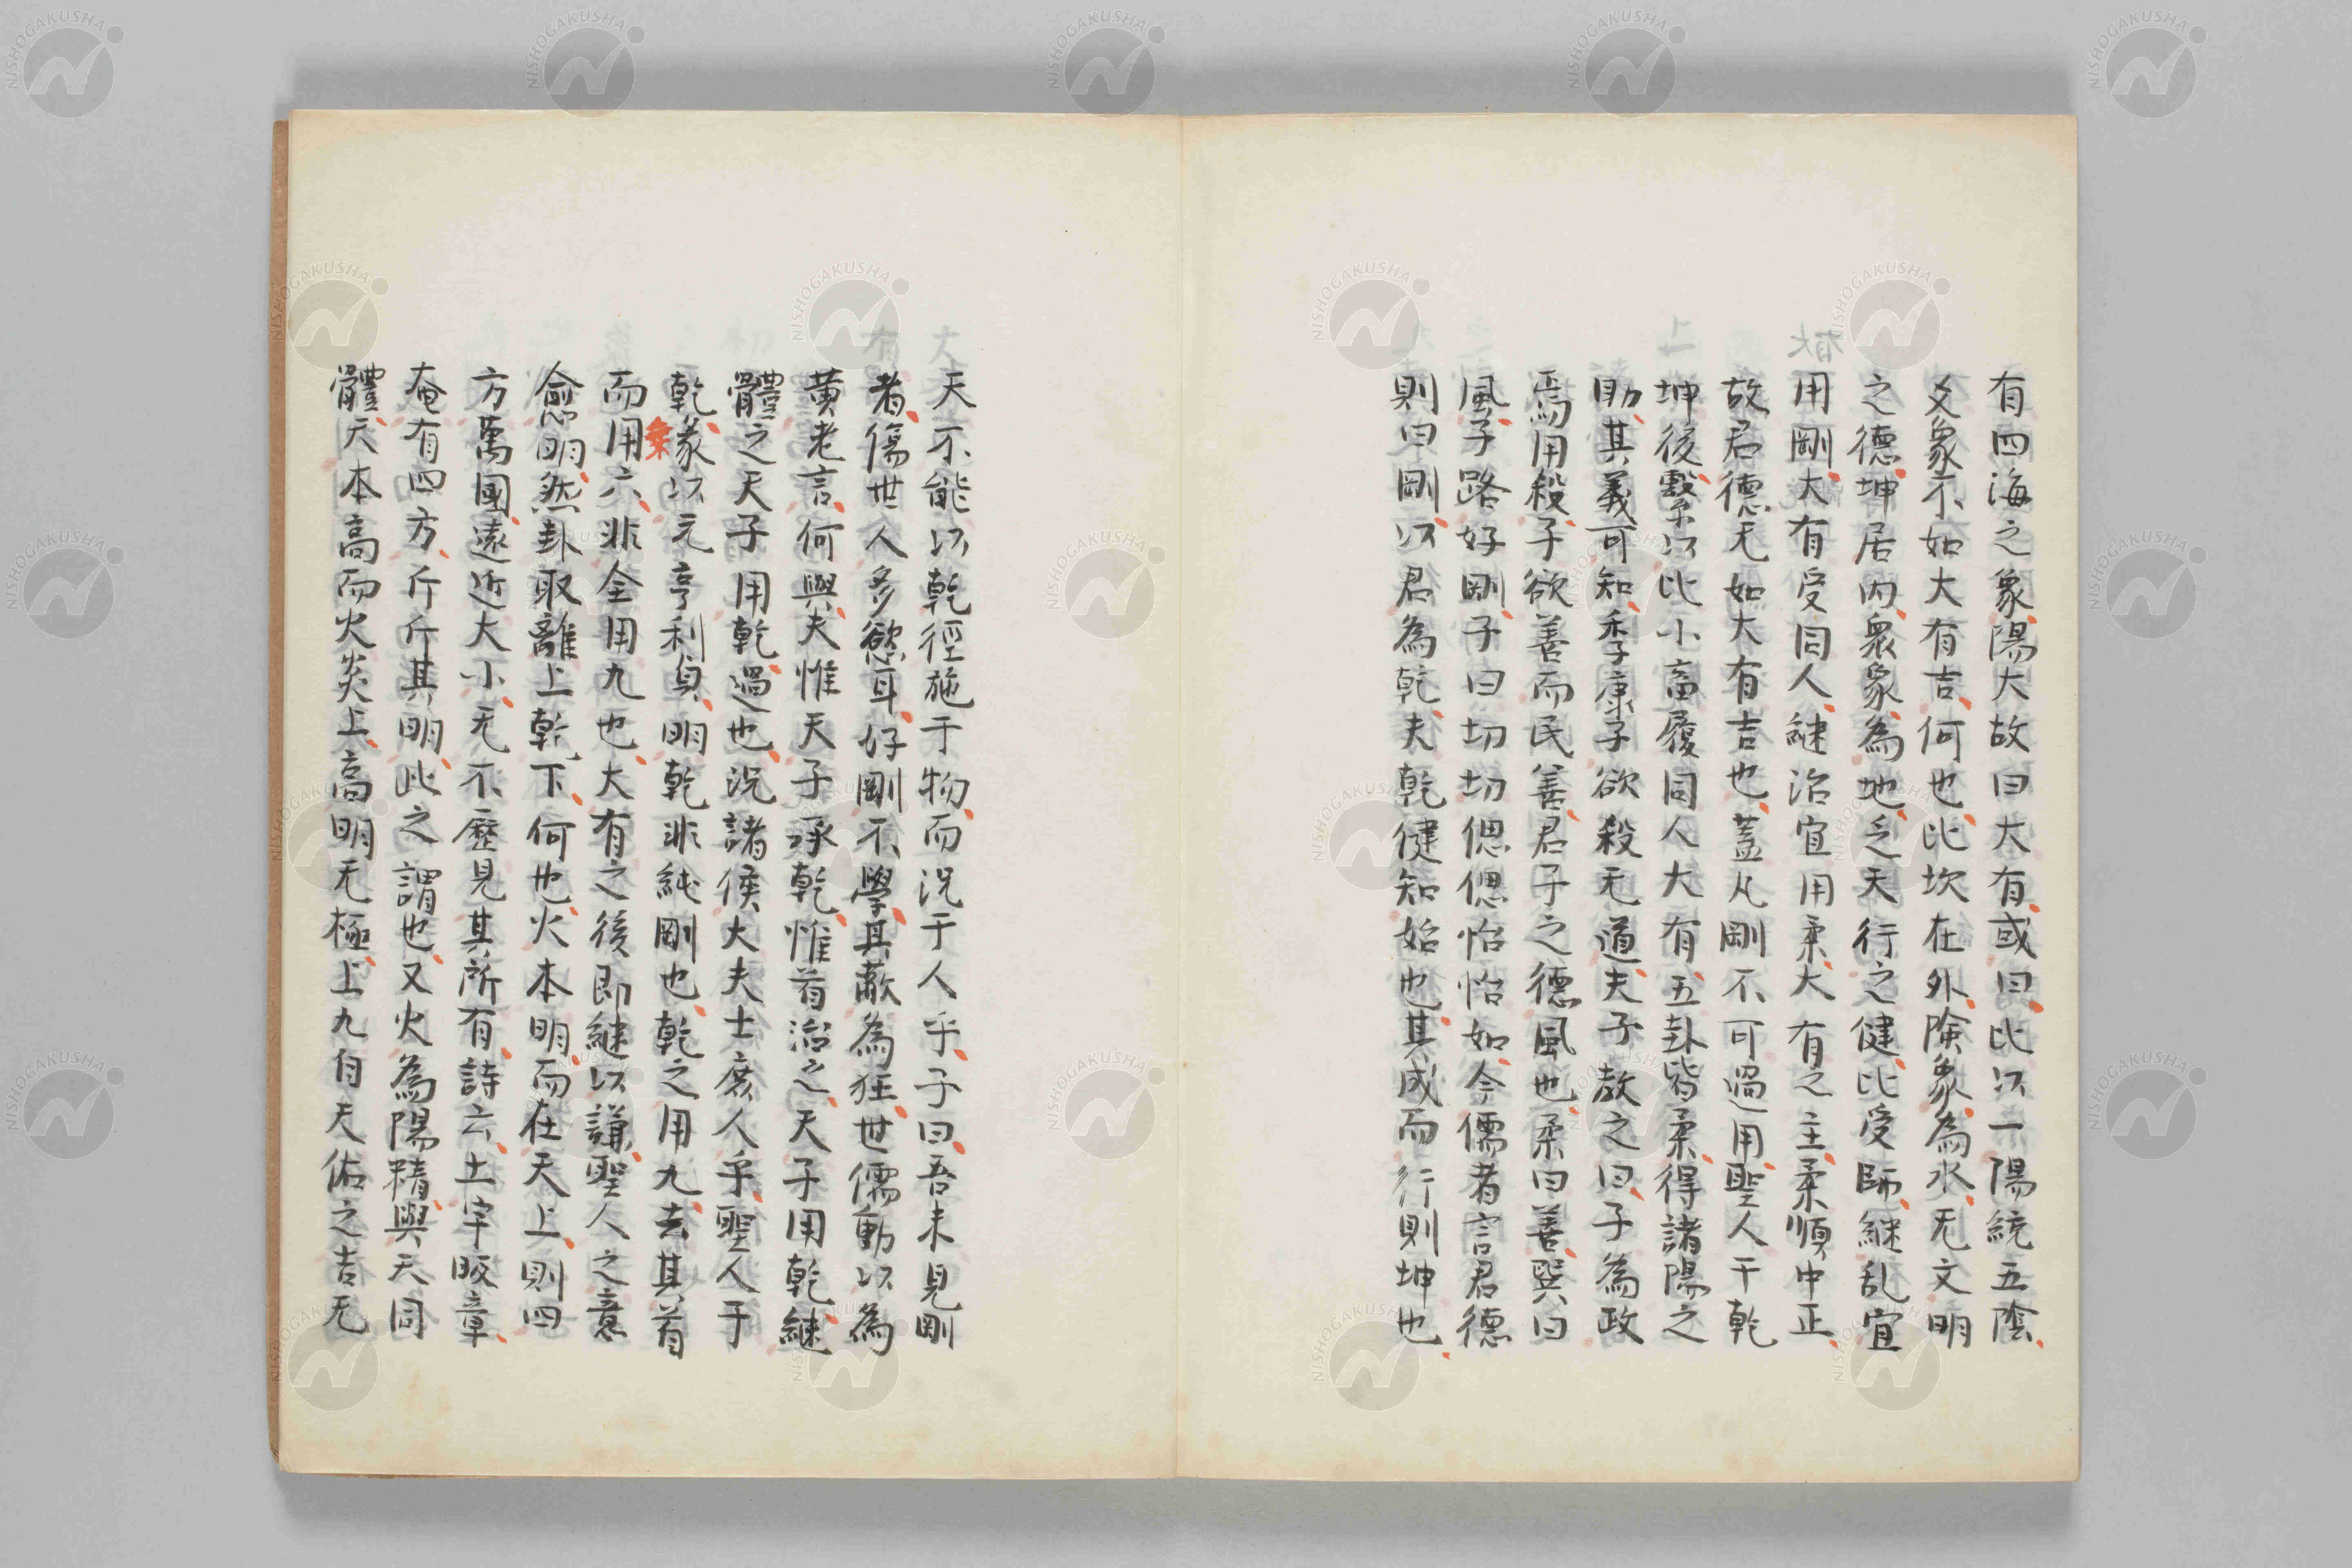 有四海之象陽大故曰大有或曰比以一陽統五陰
爻象不如大有吉何也比坎在外険象為水无文明
之德坤居内衆象為地乏天行之健比受師継乱宜
用剛大有受同人継治宜用柔大有之主柔順中正
故君德无如大有吉也蓋凡剛不可過用聖人于乾
坤後繫以比小畜履同人大有五卦皆柔得諸陽之
助其義可知季康子欲殺无道夫子教之曰子為政
焉用殺子欲善而民善君子之德風也柔曰善巽曰
風子路好剛子曰切切偲偲怡怡如今儒者言君德
則曰剛以君為乾夫乾健知始也其成而行則坤也
天不能以乾徑施于物而況于人乎子曰吾未見剛
者傷世人多慾耳好剛不學其蔽為狂世儒動以為
黄老言何與夫惟天子承乾惟首治之天子用乾継
體之天子用乾過也況諸侯大夫士庶人乎聖人于
乾彖以元亨利貞明乾非純剛也乾之用九去其首
而用六非全用九也大有之後即継以謙聖人之意
愈明然卦取離上乾下何也火本明而在天上則四
方萬國遠近大小无不歷見其所有詩云土宇昄章
奄有四方斤斤其明此之謂也又火為陽精與天同
體天本高而火炎上高明无極上九自天佑之吉无
彖
NISHOGAKUSHA